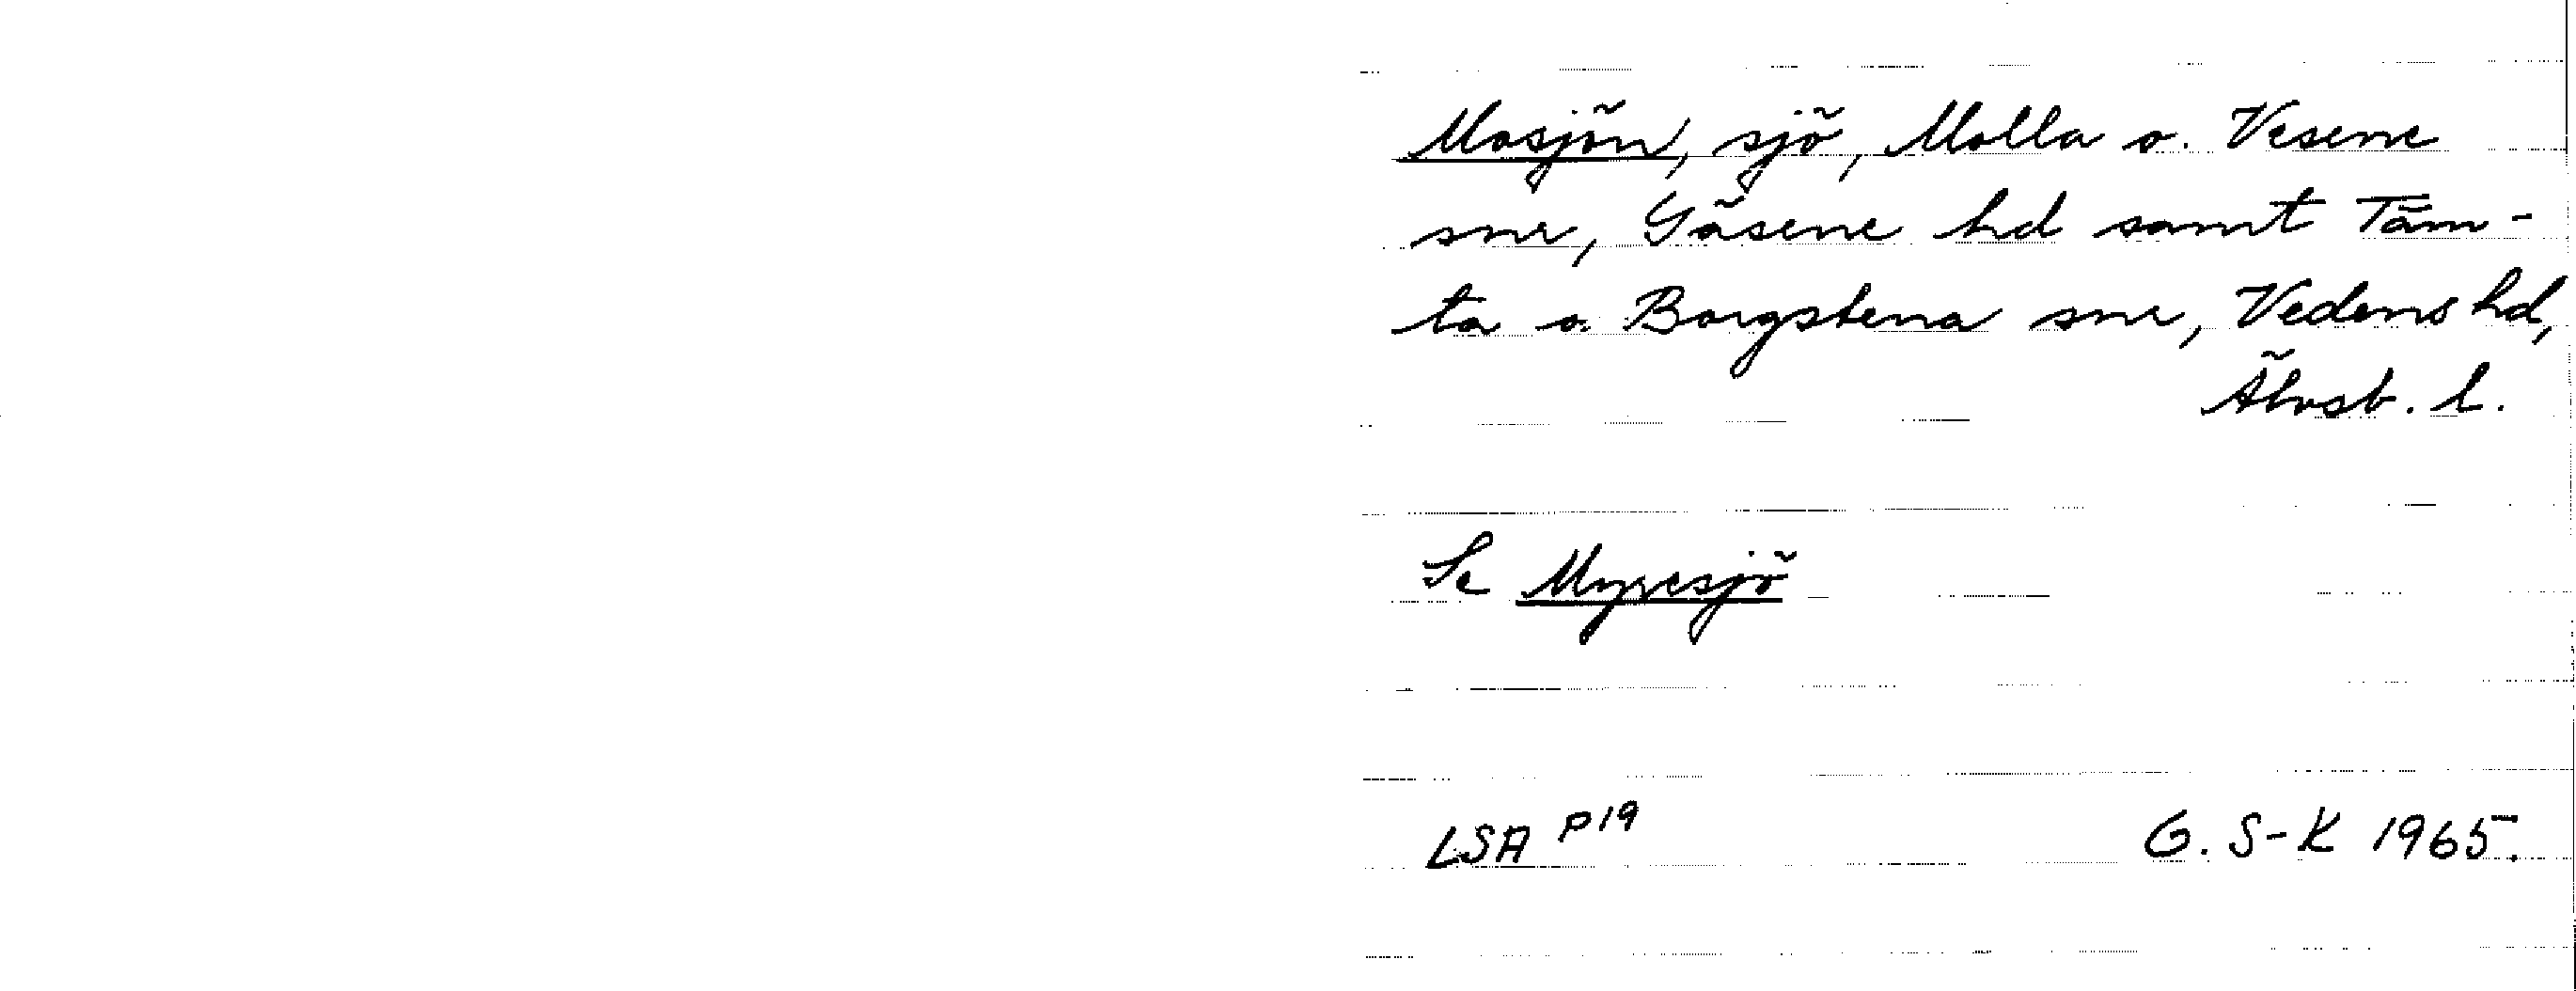 Mosjön, sjö, Molla o. Vesene
snr, Gäsene hd samt Täm-
ta o. Borgstena snr, Vedens hd,
Älvsb. l.
Se Myresjö
LSA P19 G. S-K 1965.